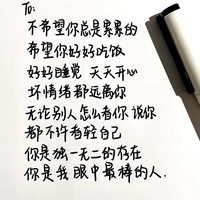 To:
不希望你总是累累的
希望你好好吃饭
好好睡觉 天天开心
坏情绪都远离你
无论别人怎么看你 说你
都不许看轻自己
你是独一无二的存在
你是我眼中最棒的人.